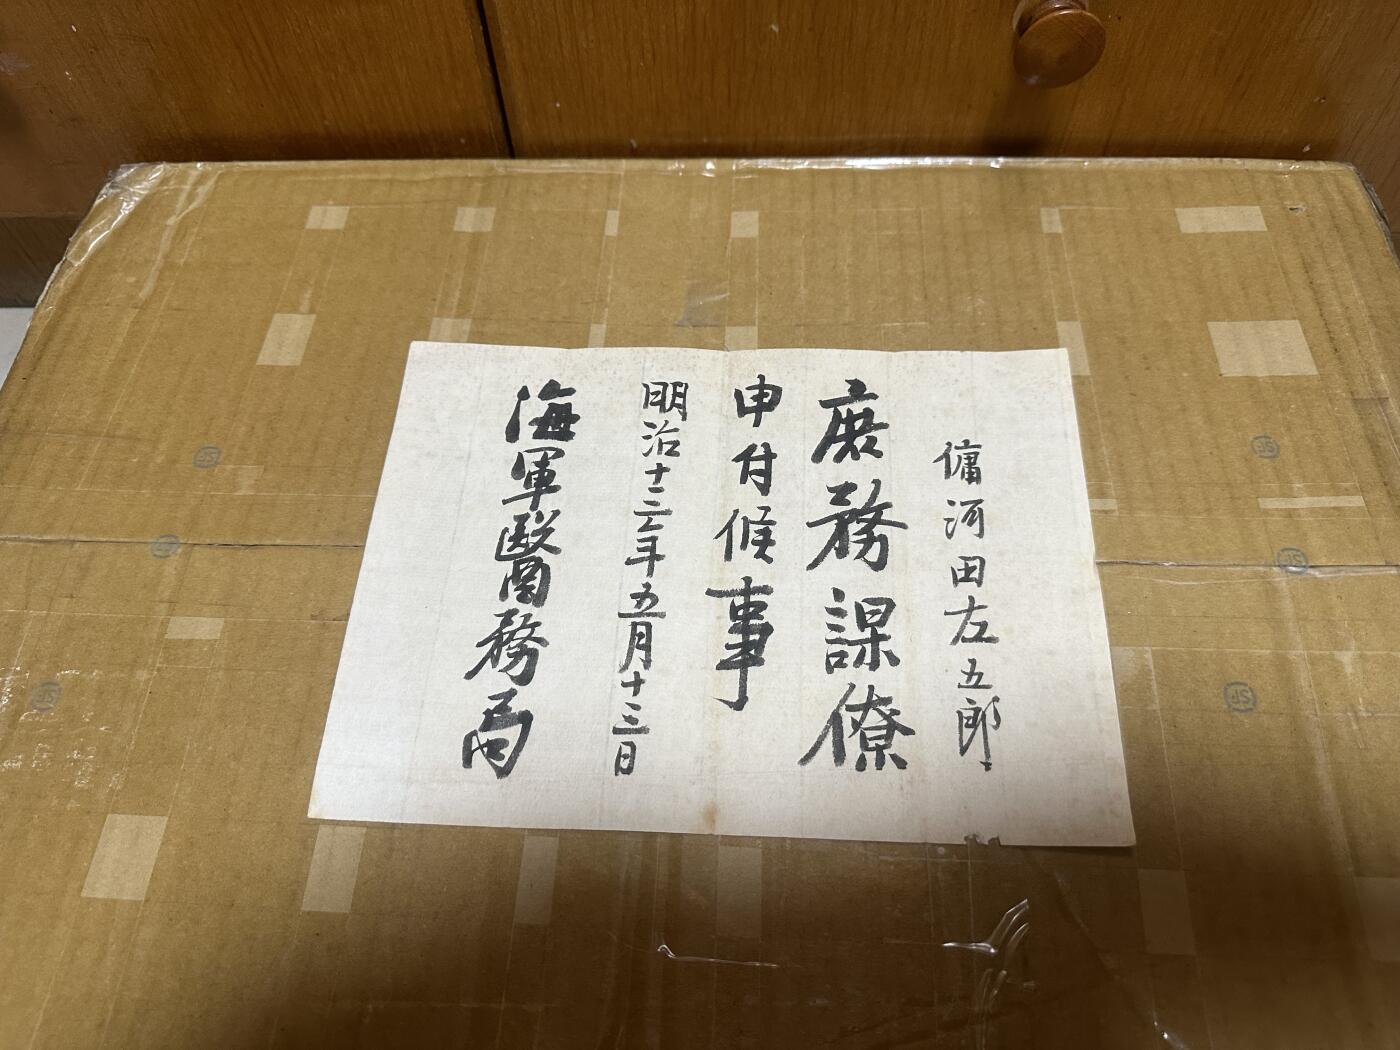 傭河田左五郎
庶務課僚
申付候事
明治十三年五月十三日
海軍醫務局